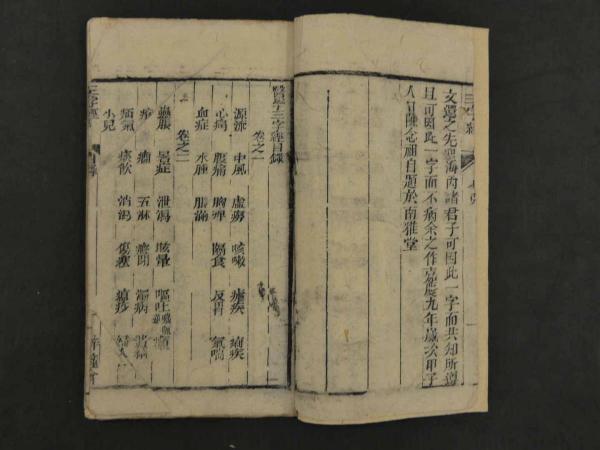 文醫之先聖海內諸君子可因此一字而共知所遵
且可因此一字而不病余之作嘉慶九年歲次甲子
人日陳念祖自題於南雅堂
醫學三字經目錄
卷之一
源流 中風 虛癆 咳嗽 瘧疾 痢疾
心痛 腹痛 胸痺 隔食 反胃 氣喘
血症 水腫 脹滿
卷之二
蠱脹 暑症 泄瀉 眩暈 嘔吐
疹 痼 五淋 癃閉
疝氣 痰飲 消渴 傷寒 瘟疫
小兒